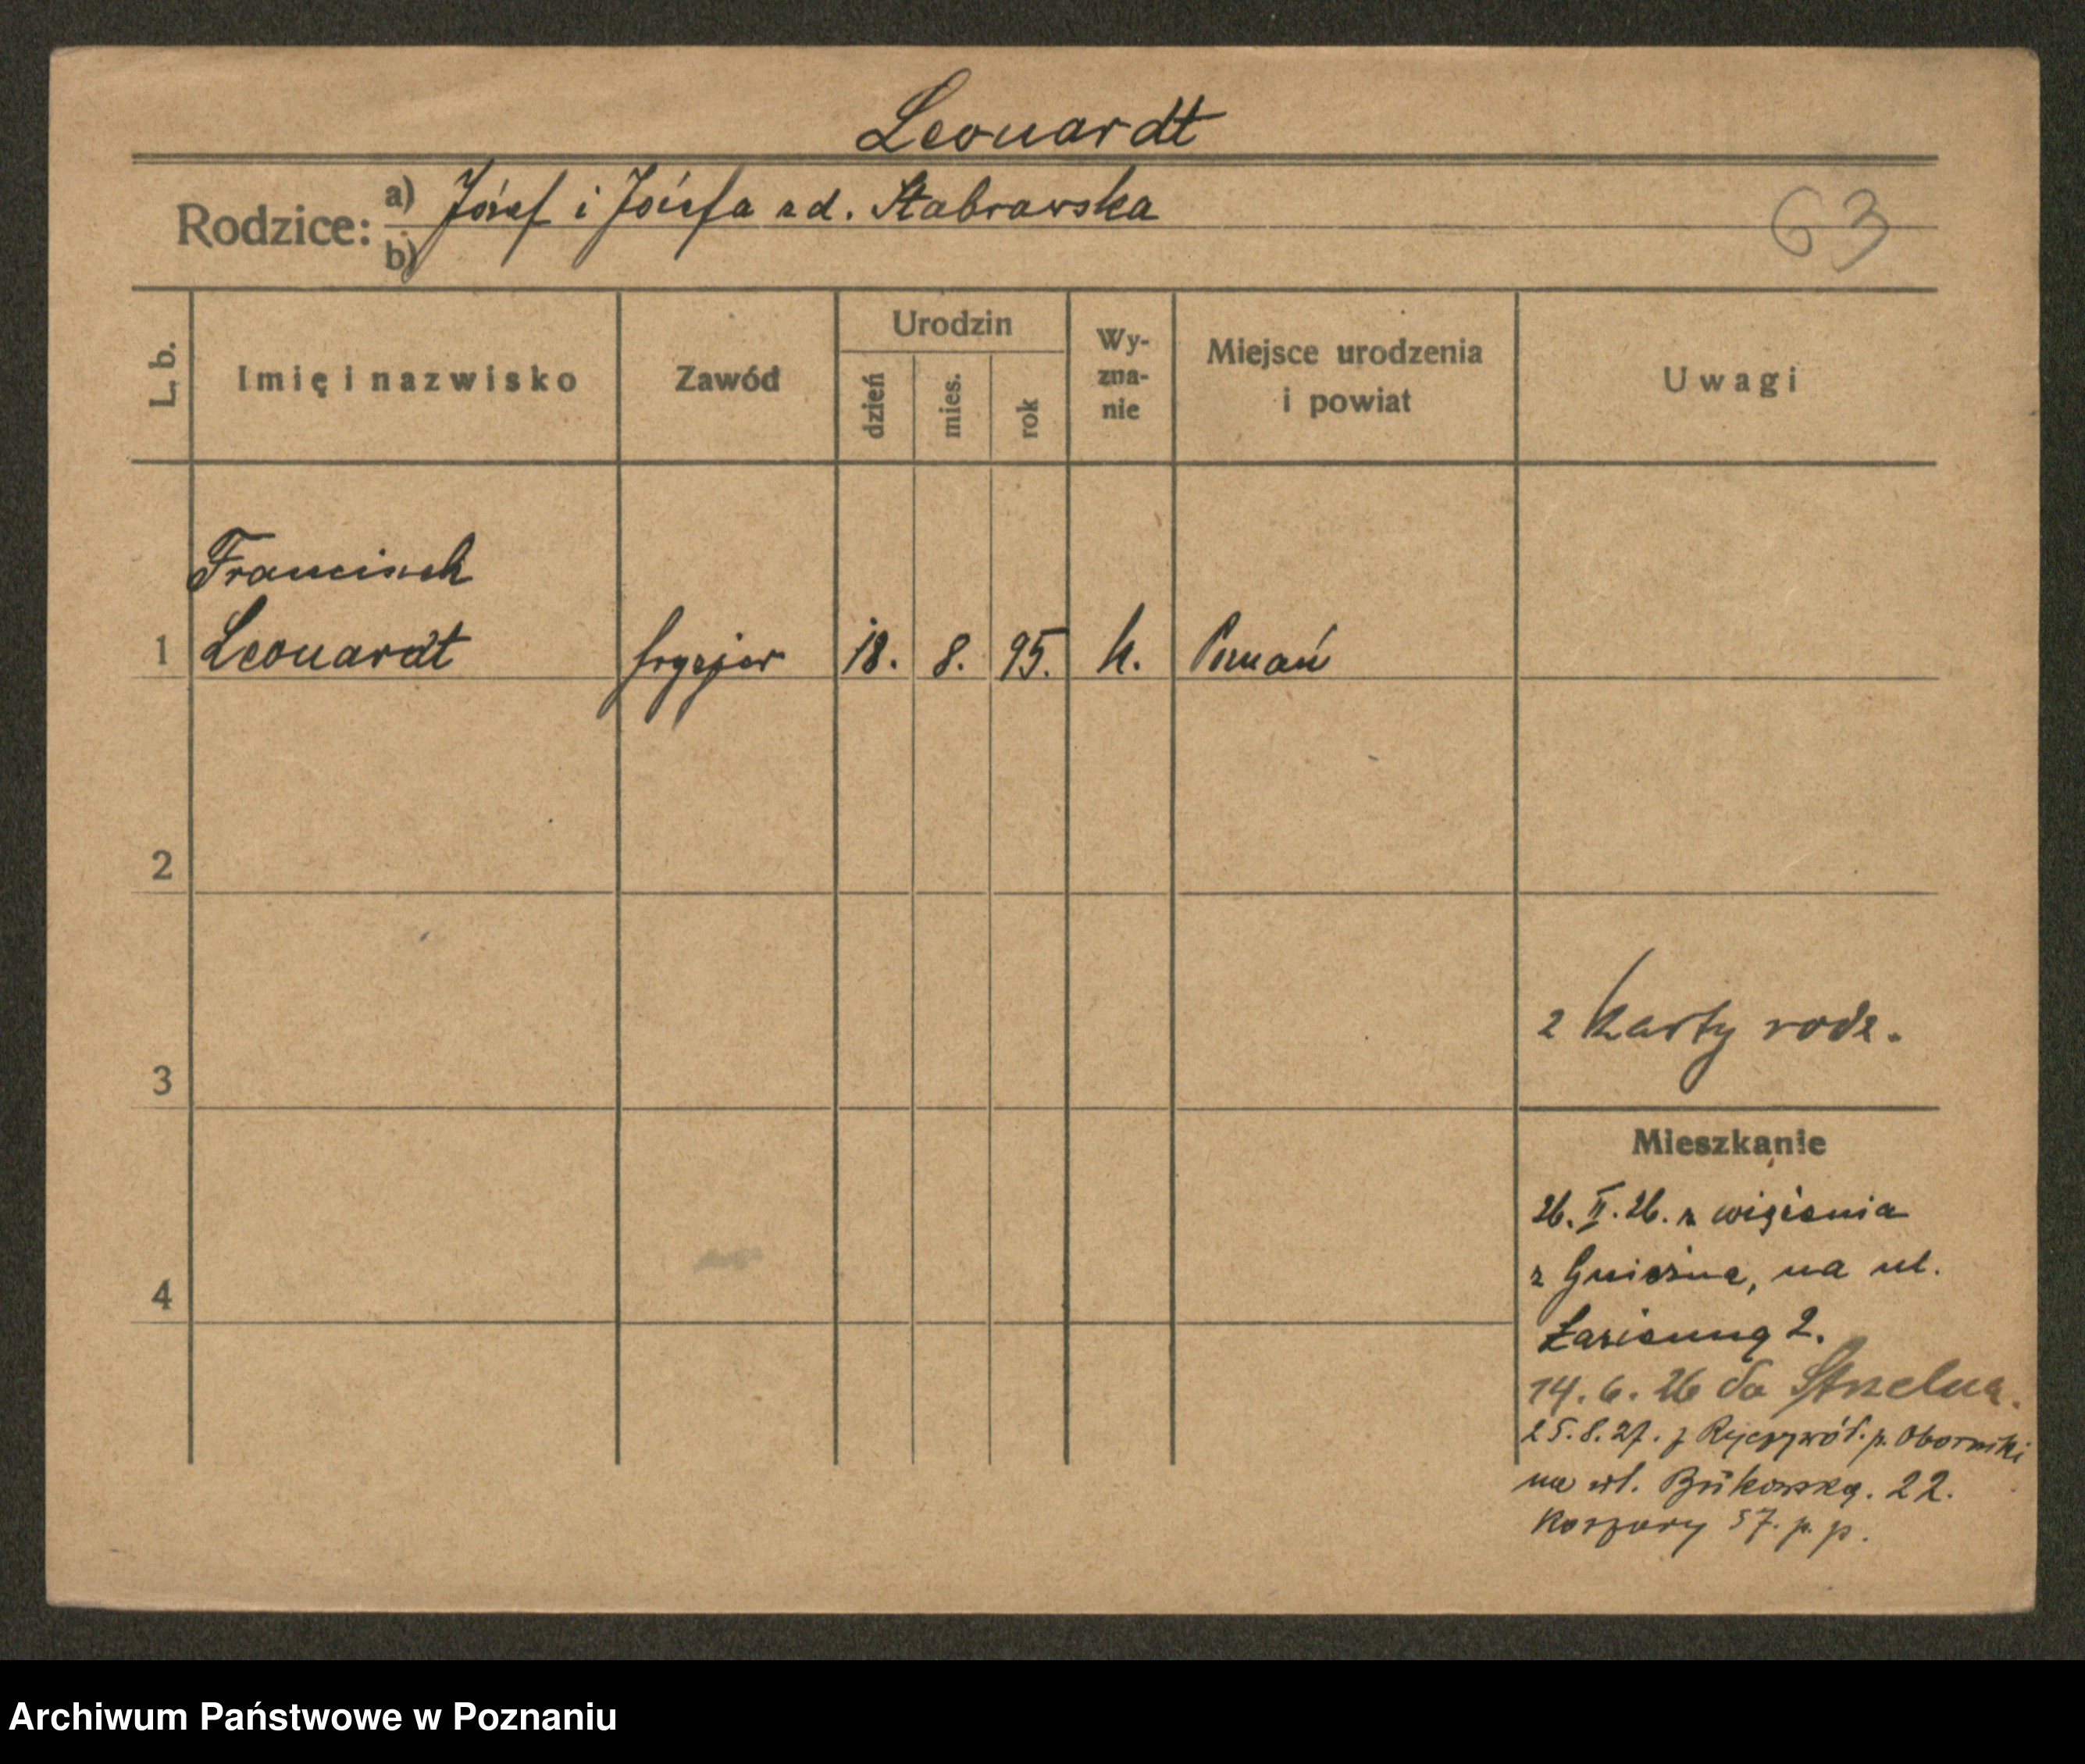 Leonardt
Rodzice: a) Józef i Józefa zd. Stabrawska
b)
63
L. b.
Imię i nazwisko
Zawód
Urodzin
dzień
mies.
rok
Wy-
zna-
nie
Miejsce urodzenia
i powiat
Uwagi
Franciszek
1 Leonardt fryzjer 18. 8. 95. k. Poznań
2
3
2 karty rodz.
Mieszkanie
4
26. II. 26. z więzienia
z Gniezna, na ul.
Łazienną 2.
14. 6. 26 do Strzelna.
25. 8. 27. z Ryczywół. p. Oborniki
na ul. Bukowską. 22.
Koszary 57. p. p.
Archiwum Państwowe w Poznaniu